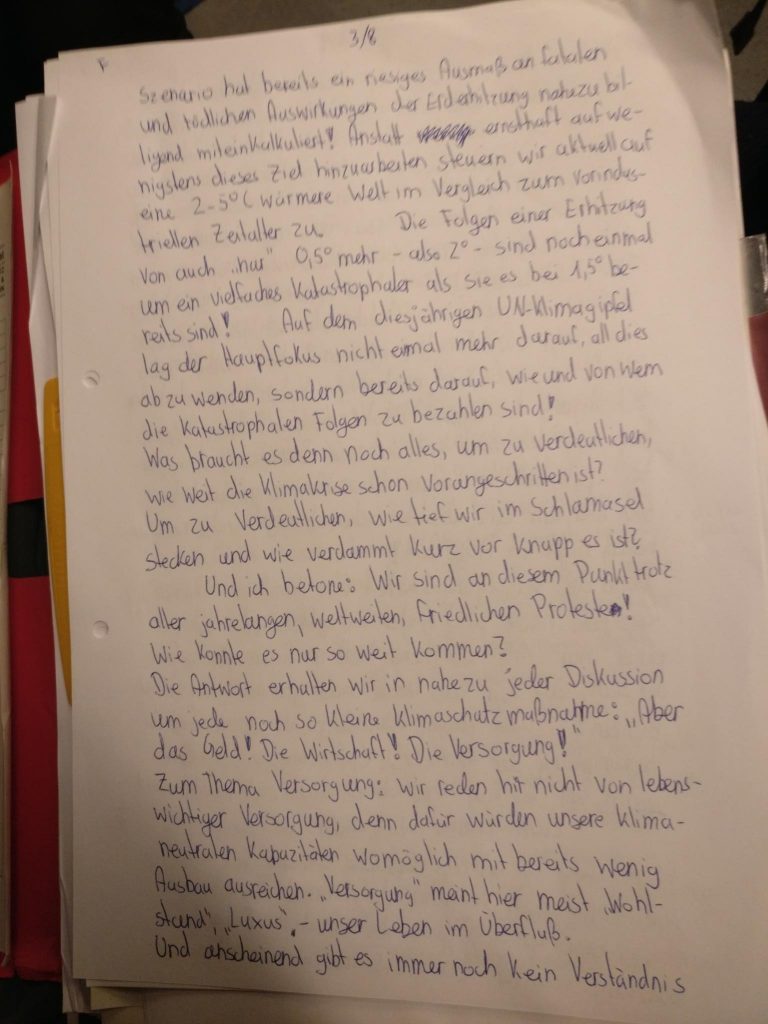 3/8
F
Szenario hat bereits ein riesiges Ausmaß an fatalen
und tödlichen Auswirkungen der Erderhitzung nahezu bil-
ligend miteinkalkuliert! Anstatt ernsthaft auf we-
nigstens dieses Ziel hinzuarbeiten steuern wir aktuell auf
eine 2-5°C wärmere Welt im Vergleich zum vorindus-
triellen Zeitalter zu. Die Folgen einer Erhitzung
von auch „nur" 0,5° mehr - also 2° - sind noch einmal
um ein vielfaches katastrophaler als sie es bei 1,5° be-
reits sind! Auf dem diesjährigen UN-Klimagipfel
lag der Hauptfokus nicht einmal mehr darauf, all dies
abzuwenden, sondern bereits darauf, wie und von wem
die katastrophalen Folgen zu bezahlen sind!
Was braucht es denn noch alles, um zu verdeutlichen,
wie weit die Klimakrise schon vorangeschritten ist?
Um zu verdeutlichen, wie tief wir im Schlamasel
stecken und wie verdammt kurz vor knapp es ist?
Und ich betone: Wir sind an diesem Punkt trotz
aller jahrelangen, weltweiten, friedlichen Proteste!
Wie konnte es nur so weit kommen?
Die Antwort erhalten wir in nahezu jeder Diskussion
um jede noch so kleine Klimaschutzmaßnahme: „Aber
das Geld! Die Wirtschaft! Die Versorgung!"
Zum Thema Versorgung: wir reden hir nicht von lebens-
wichtiger Versorgung, denn dafür würden unsere klima-
neutralen Kapazitäten womöglich mit bereits wenig
Ausbau ausreichen. „Versorgung" meint hier meist „Wohl-
stand", „Luxus", - unser Leben im Überfluß.
Und anscheinend gibt es immer noch kein Verständnis